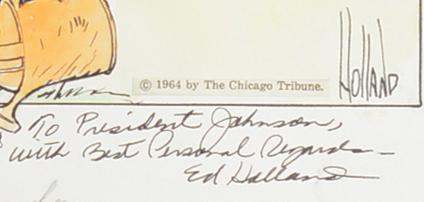 © 1964 by The Chicago Tribune.
HOLLAND
To President Johnson,
with Best Personal Regards—
Ed Holland